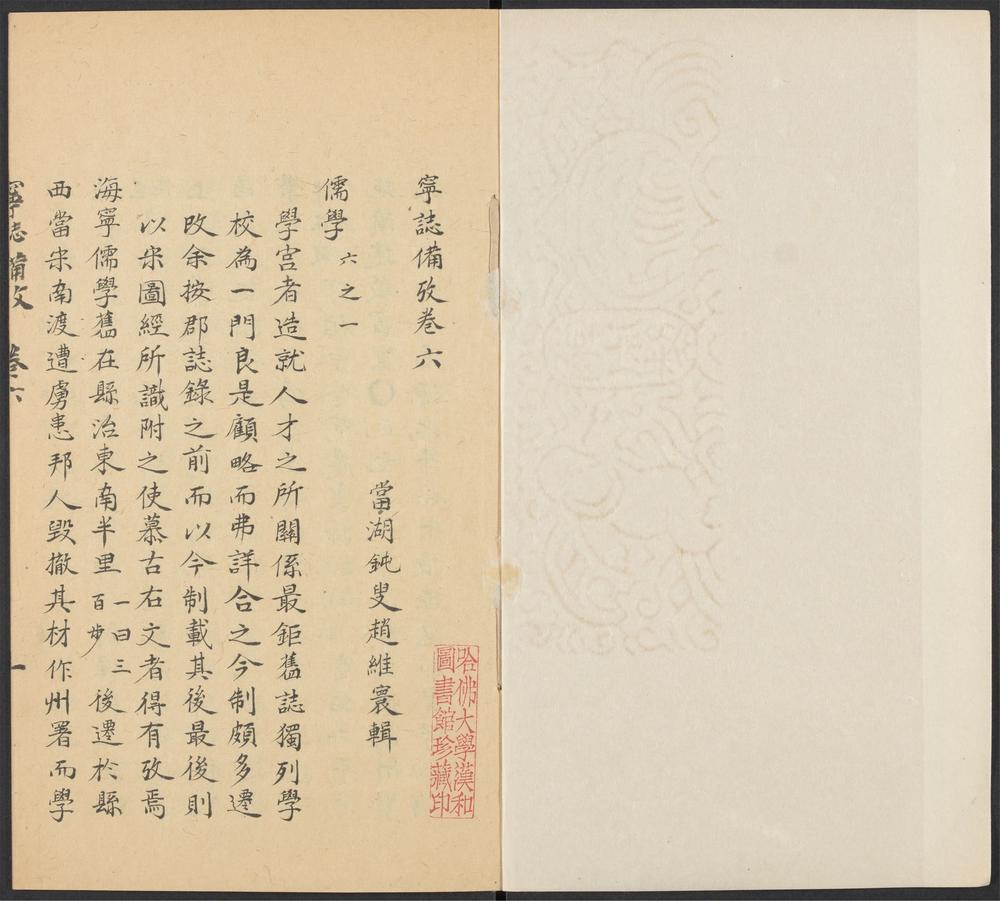 寧誌備攷卷六
當湖鈍叟趙維寰輯
儒學六之一
學宮者造就人才之所關係最鉅舊誌獨列學
校為一門良是顧略而弗詳合之今制頗多遷
改余按郡誌錄之前而以今制載其後最後則
以宋圖經所識附之使慕古右文者得有攷焉
海寧儒學舊在縣治東南半里一曰三百步後遷於縣
西當宋南渡遭虜患邦人毀撤其材作州署而學
寧誌備攷 卷六 一
哈佛大學漢和
圖書館珍藏印